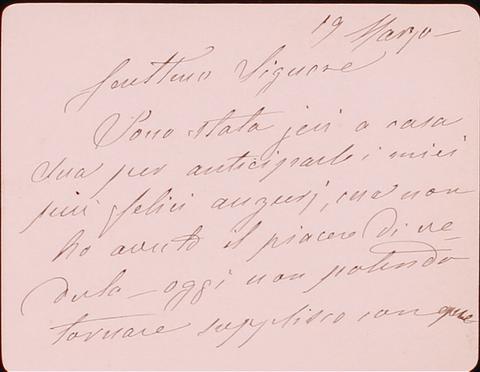 19 Marzo —
Gentilmo Signore
Sono stata jeri a casa
sua per anticiparle i miei
più felici augurj, ma non
ho avuto il piacere di ve-
derla — oggi non potendo
tornare supplisco con que